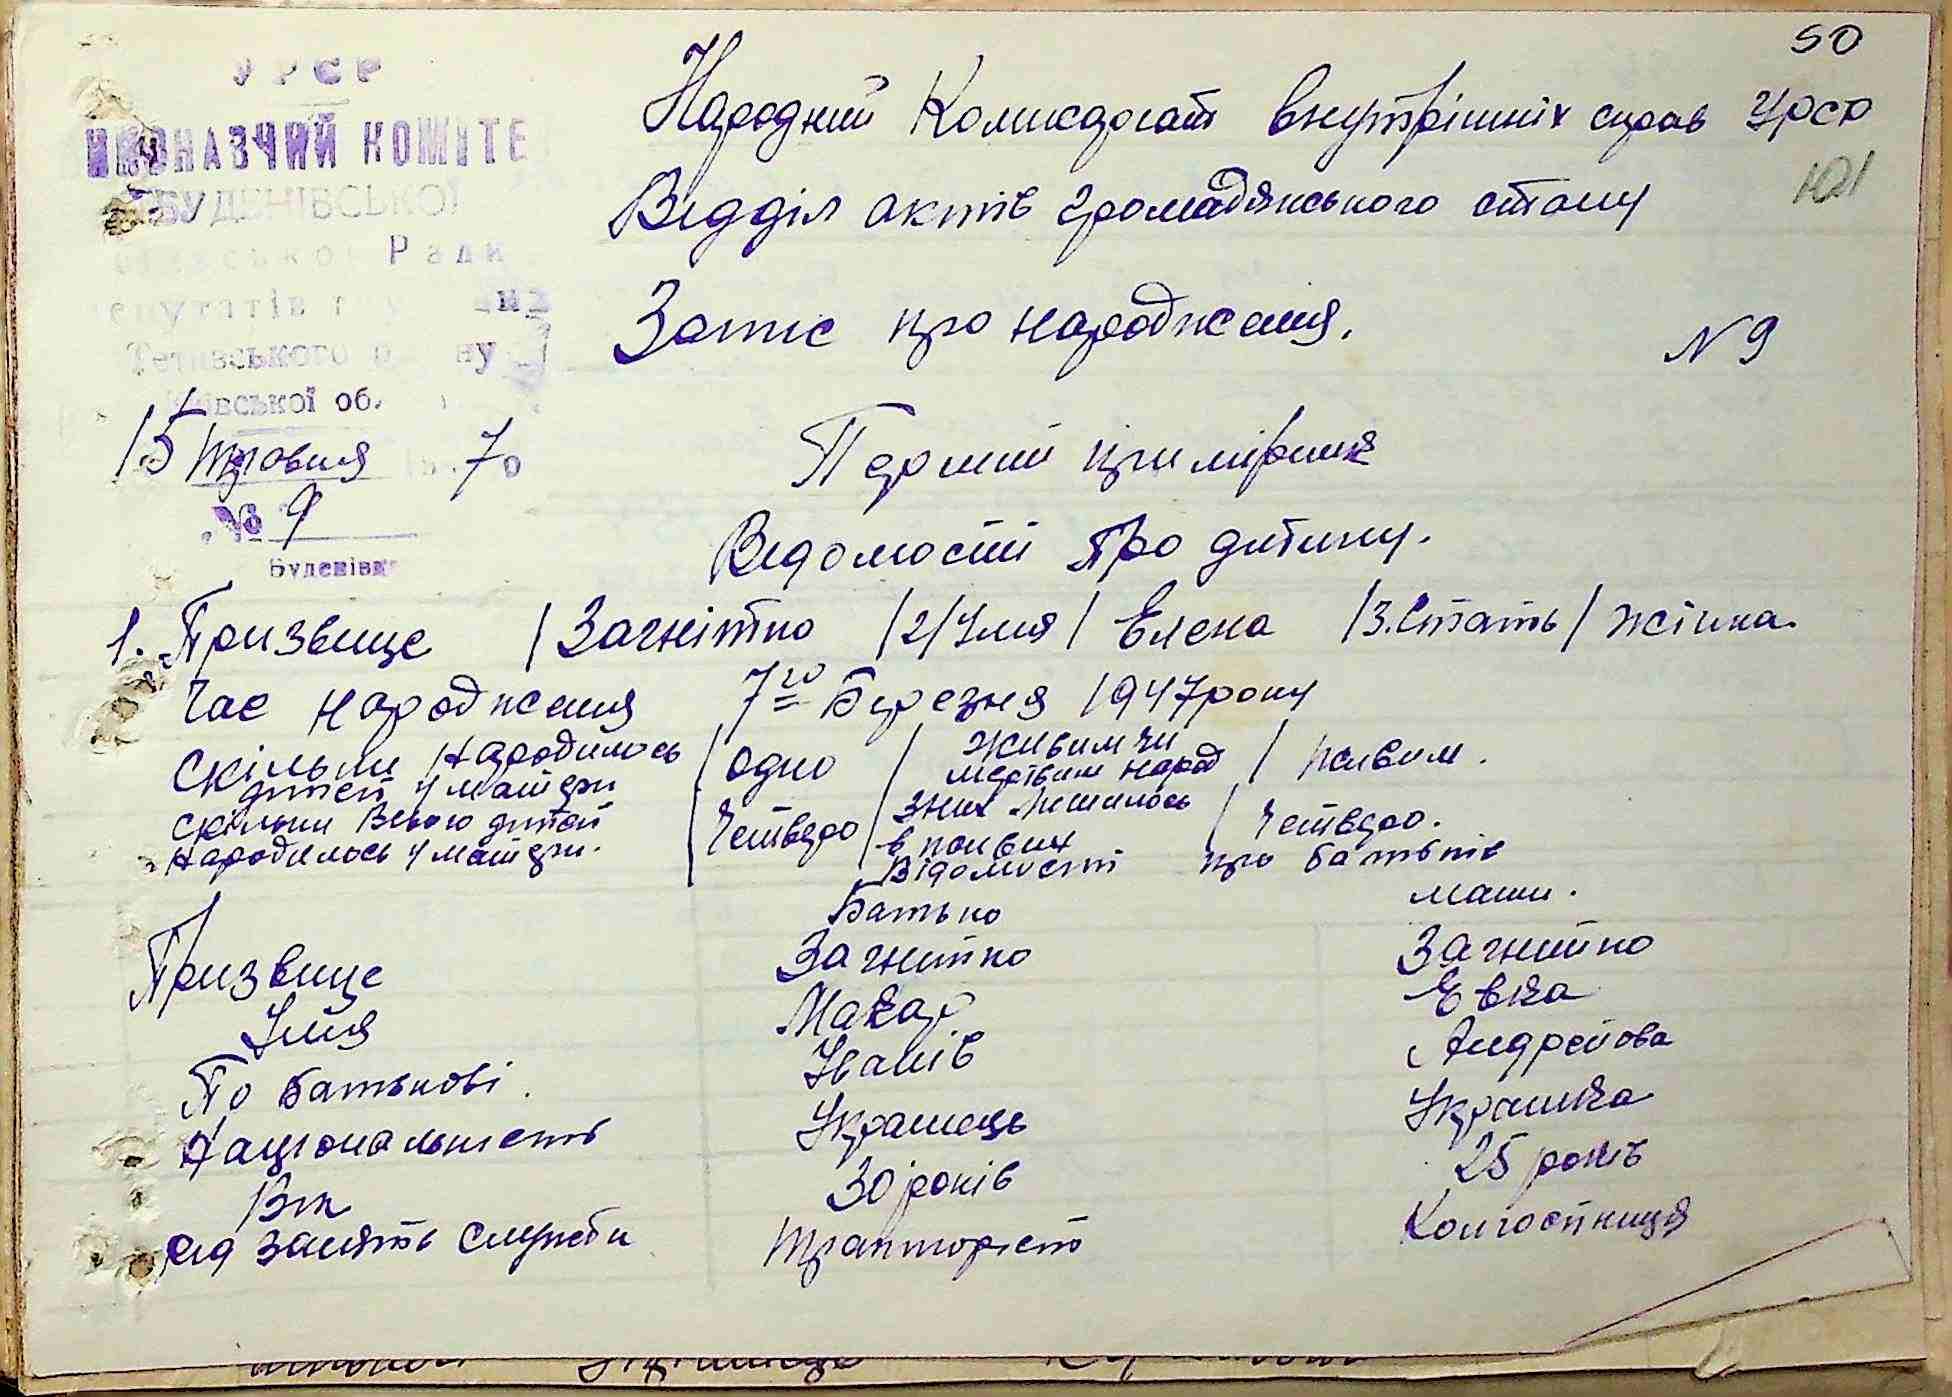 50
УРСР
ВИКОНАВЧИЙ КОМІТЕ
БУДЕНІВСЬКОЇ
сільської Ради
депутатів
Тетіївського району
Київської об.
15 травня 70
№ 9
Буденівка
Народний Комисаріат внутрішніх справ УРСР
101
Відділ актів громадянського стану
Запис про народження.
N 9
Перший примірник
Відомості про дитину.
1. Призвище / Загнітко /2/ Імя / Елена /3. Стать / жінка.
Час народження 7го Березня 1947 року
Скільки народилось дітей у матери / одно / живим чи мертвим народ / живим.
Скільки всього дитей народилось у матери. / Четверо / Зних лишилось в живих / Четверо.
Відомості про батьків
Батько мати.
Призвище Загнитко Загнитко
Імя Макар Евка
По батькові Іванів Андрейова
Національність Украінець Украінка
Вік 30 років 25 років
Рід занять служби тракторіст Колгостниця